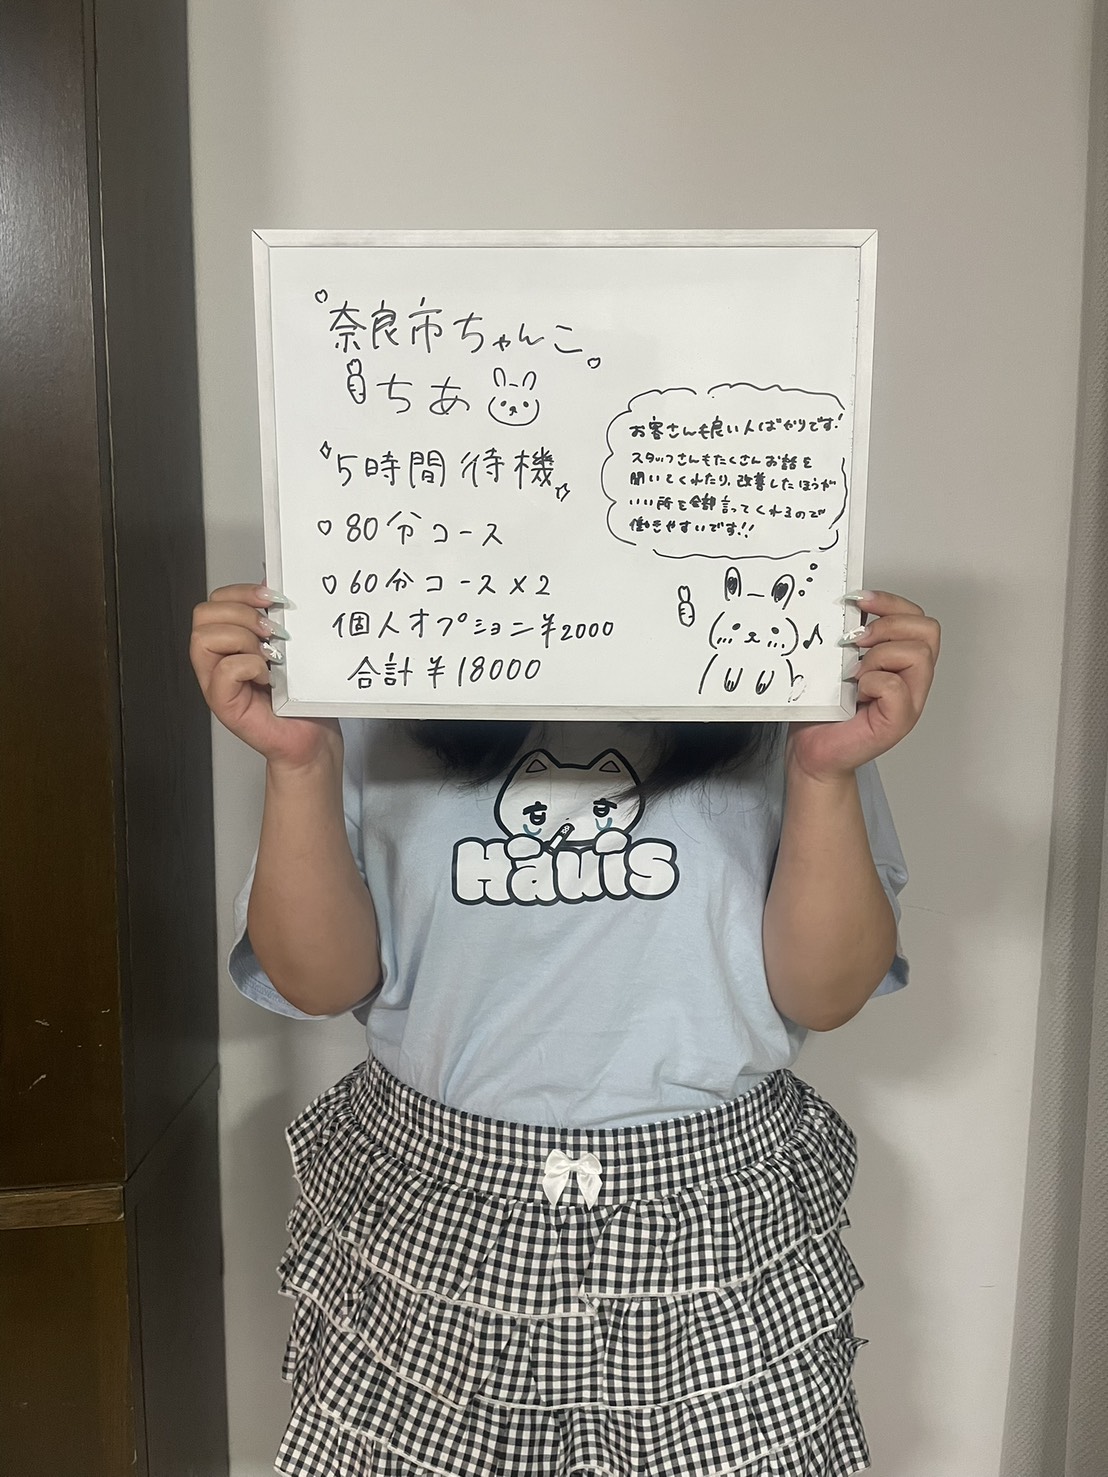 奈良市ちゃんこ
ちあ
5時間待機
80分コース
60分コース×2
個人オプション¥2000
合計¥18000
お客さんも良い人ばかりです!
スタッフさんもたくさんお話を
聞いてくれたり、改善したほうが
いい所を全部言ってくれるので
働きやすいです!!
Hauis